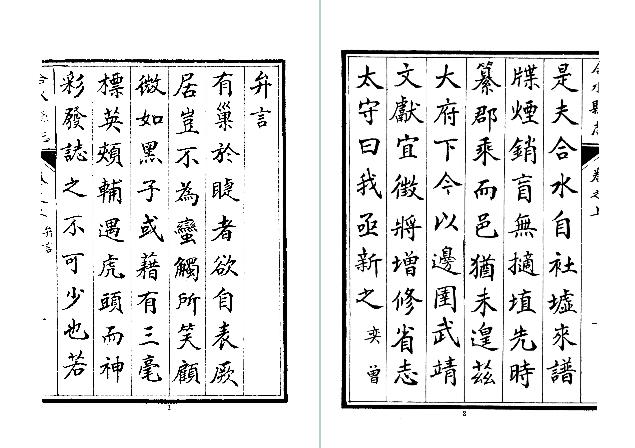 弁言
有巢於睫者欲自表厥
居豈不為蠻觸所笑顧
微如黑子或藉有三毫
標英頰輔遇虎頭而神
彩發誌之不可少也若
弁言
1
合水縣志 卷之上
是夫合水自社墟來譜
牒煙銷盲無擿埴先時
纂郡乘而邑猶未遑茲
大府下令以邊圉武靖
文獻宜徵將增修省志
太守曰我亟新之奕曾